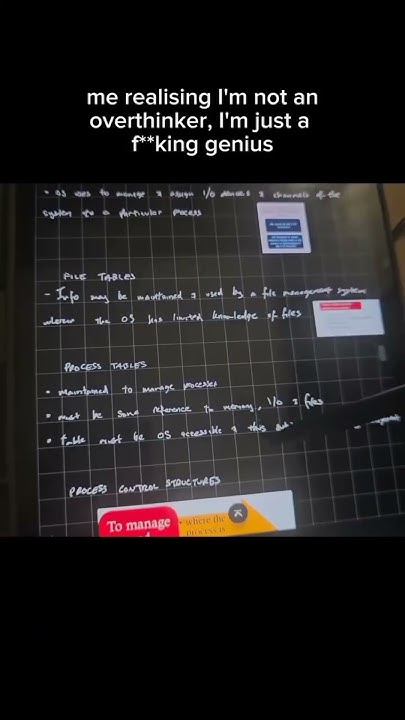 me realising I'm not an
overthinker, I'm just a
f**king genius
• OS uses to manage & assign I/O devices & channels of the
system to a particular process
FILE TABLES
- Info may be maintained & used by a file management system
wherein the OS has limited knowledge of files
PROCESS TABLES
• maintained to manage processes
• must be some reference to memory, I/O & files
• table must be OS accessible &
PROCESS CONTROL STRUCTURES
To manage
• where the
process is